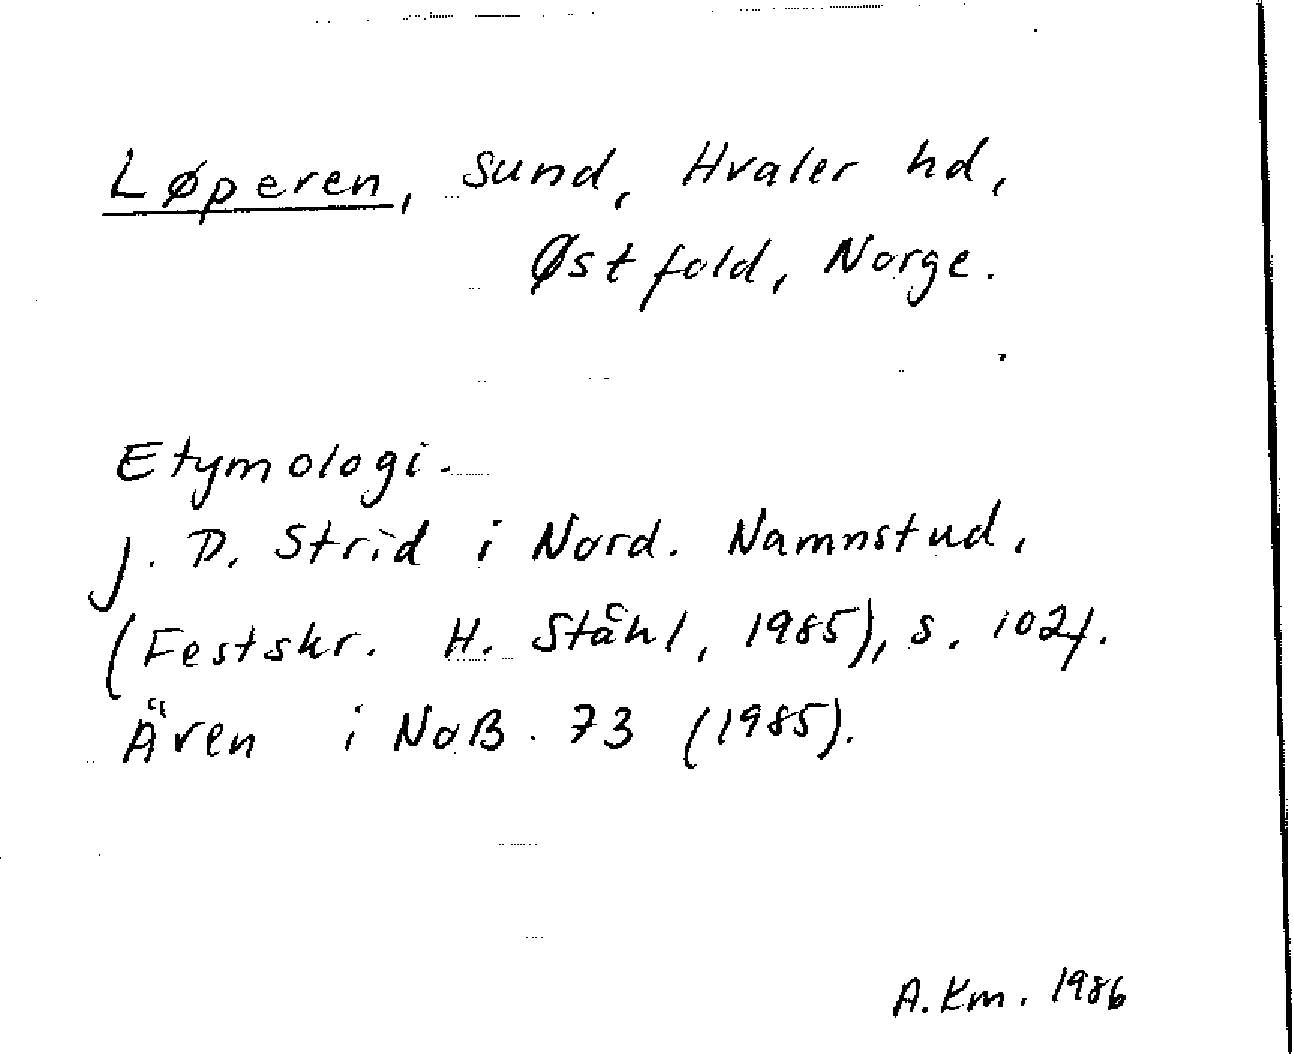 Løperen, sund, Hvaler hd,
Østfold, Norge.
Etymologi.
J. P. Strid i Nord. Namnstud.
(Festskr. H. Ståhl, 1985), s. 102f.
Även i NoB. 73 (1985).
A. Km. 1986